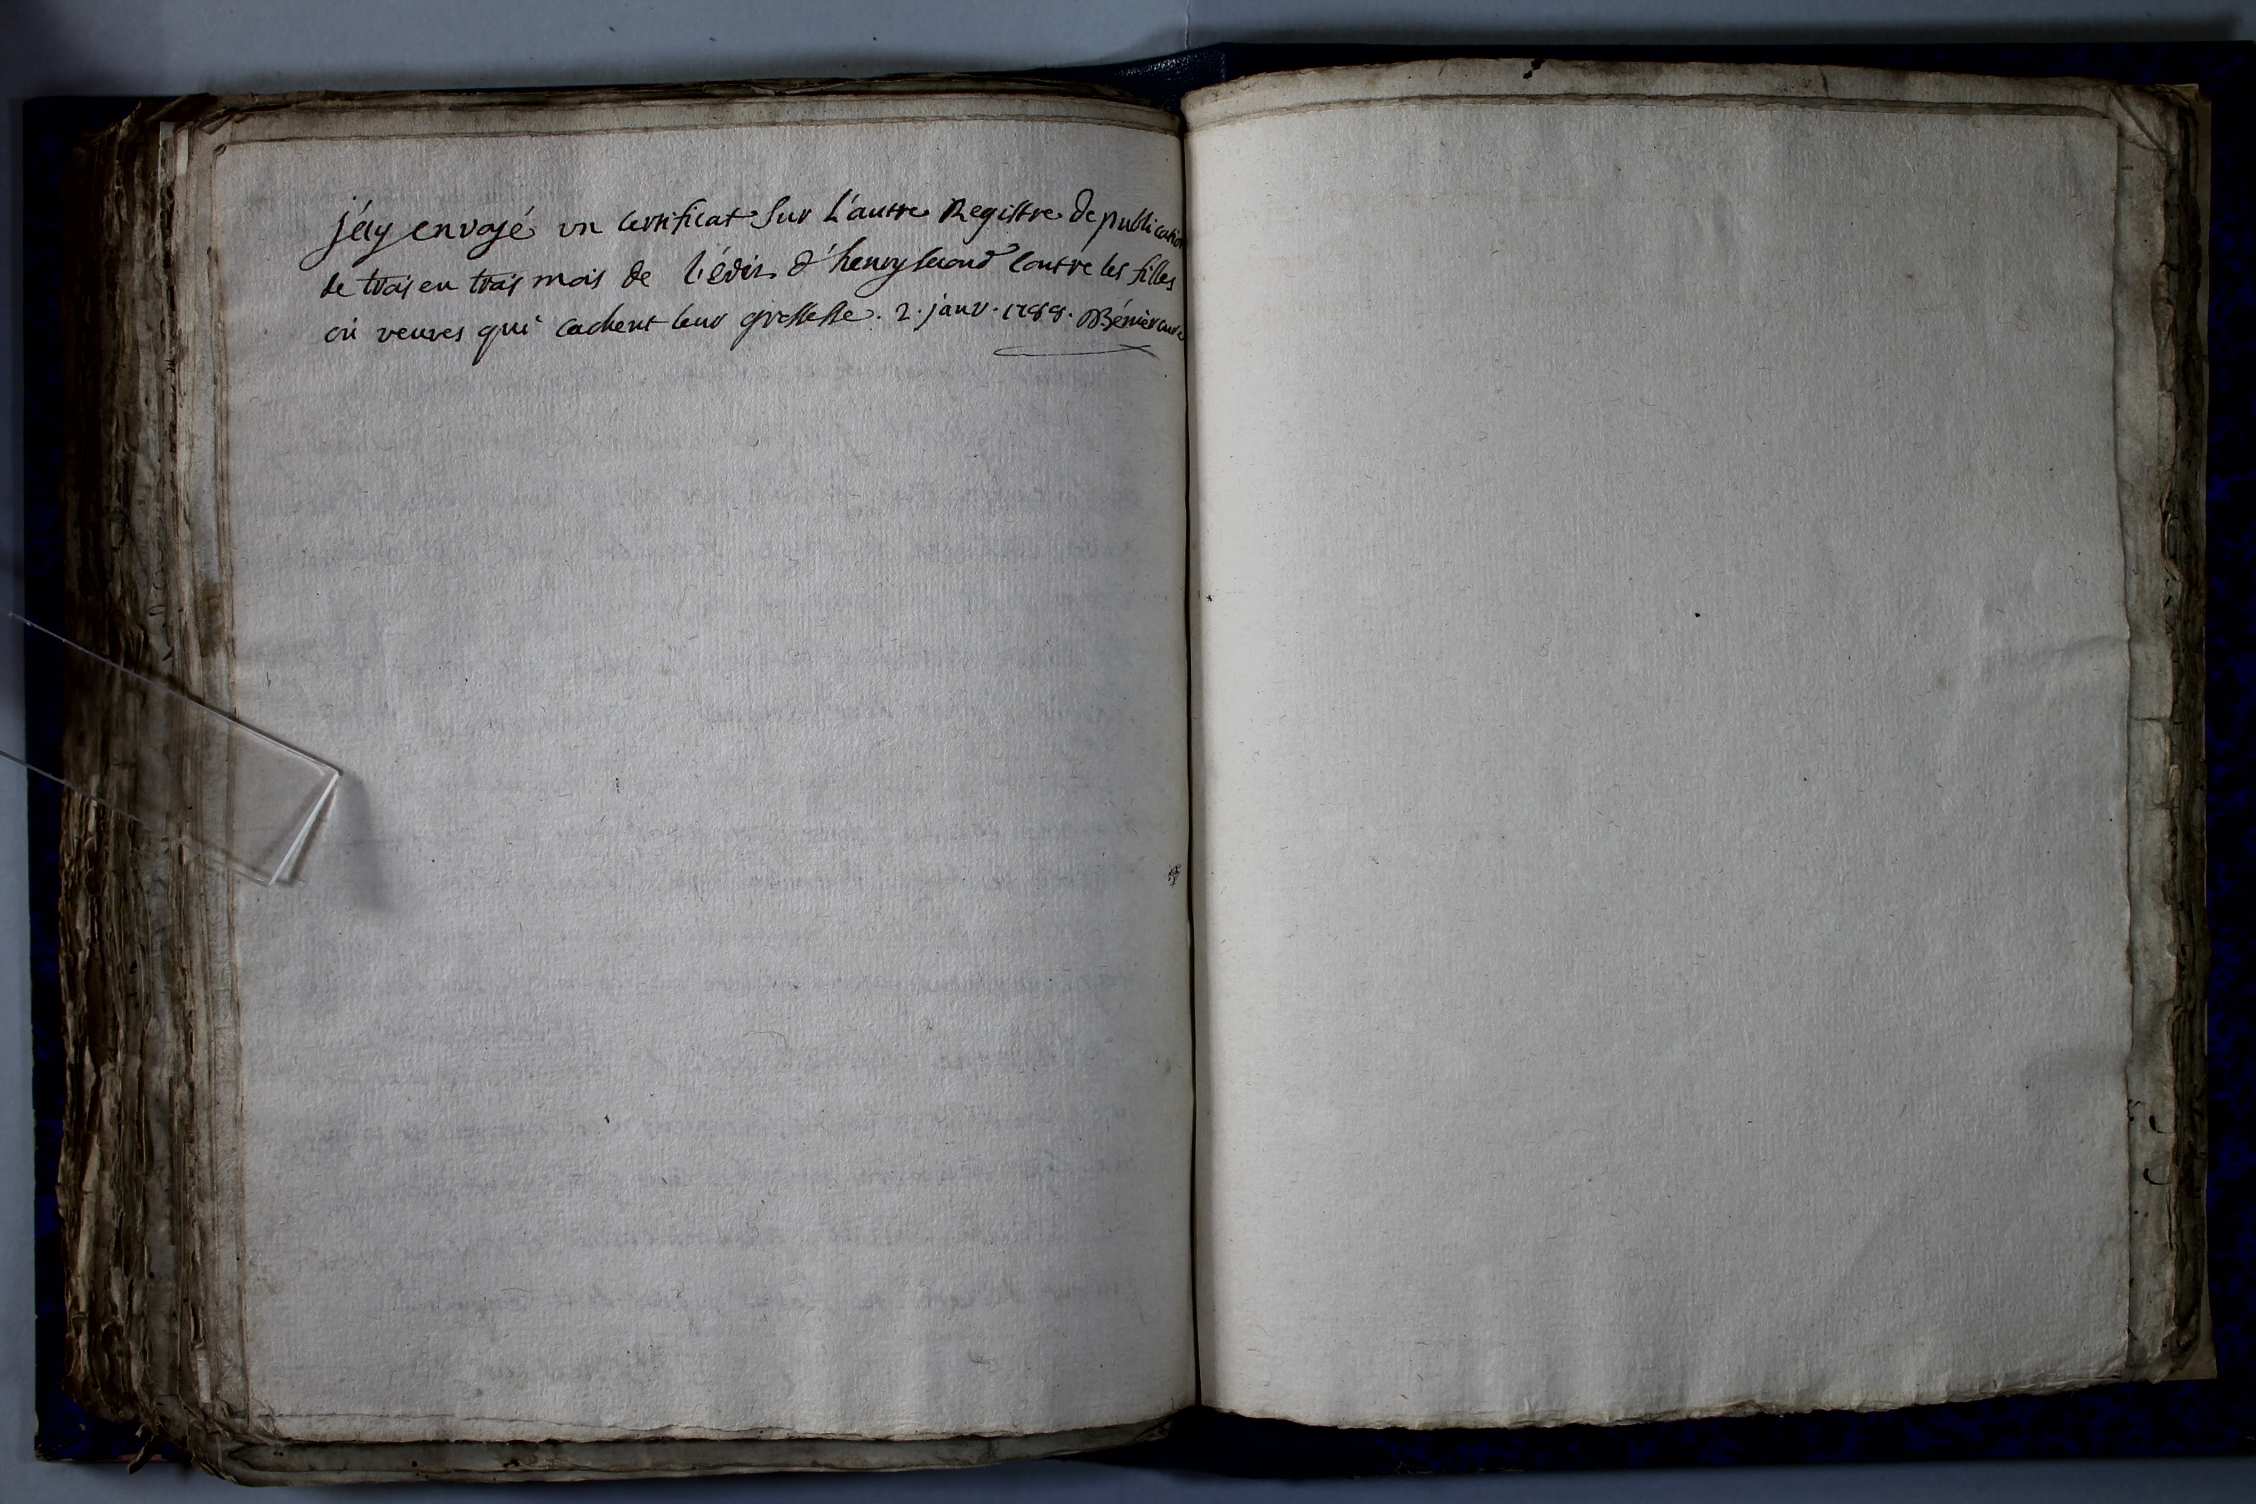 j'ay envoyé un certificat sur L'autre Registre de publication
de trois en trois mois de l'édit d'henry second contre les filles
ou veuves qui cachent leur grossesse. 2. janv. 1788. Bénier curé